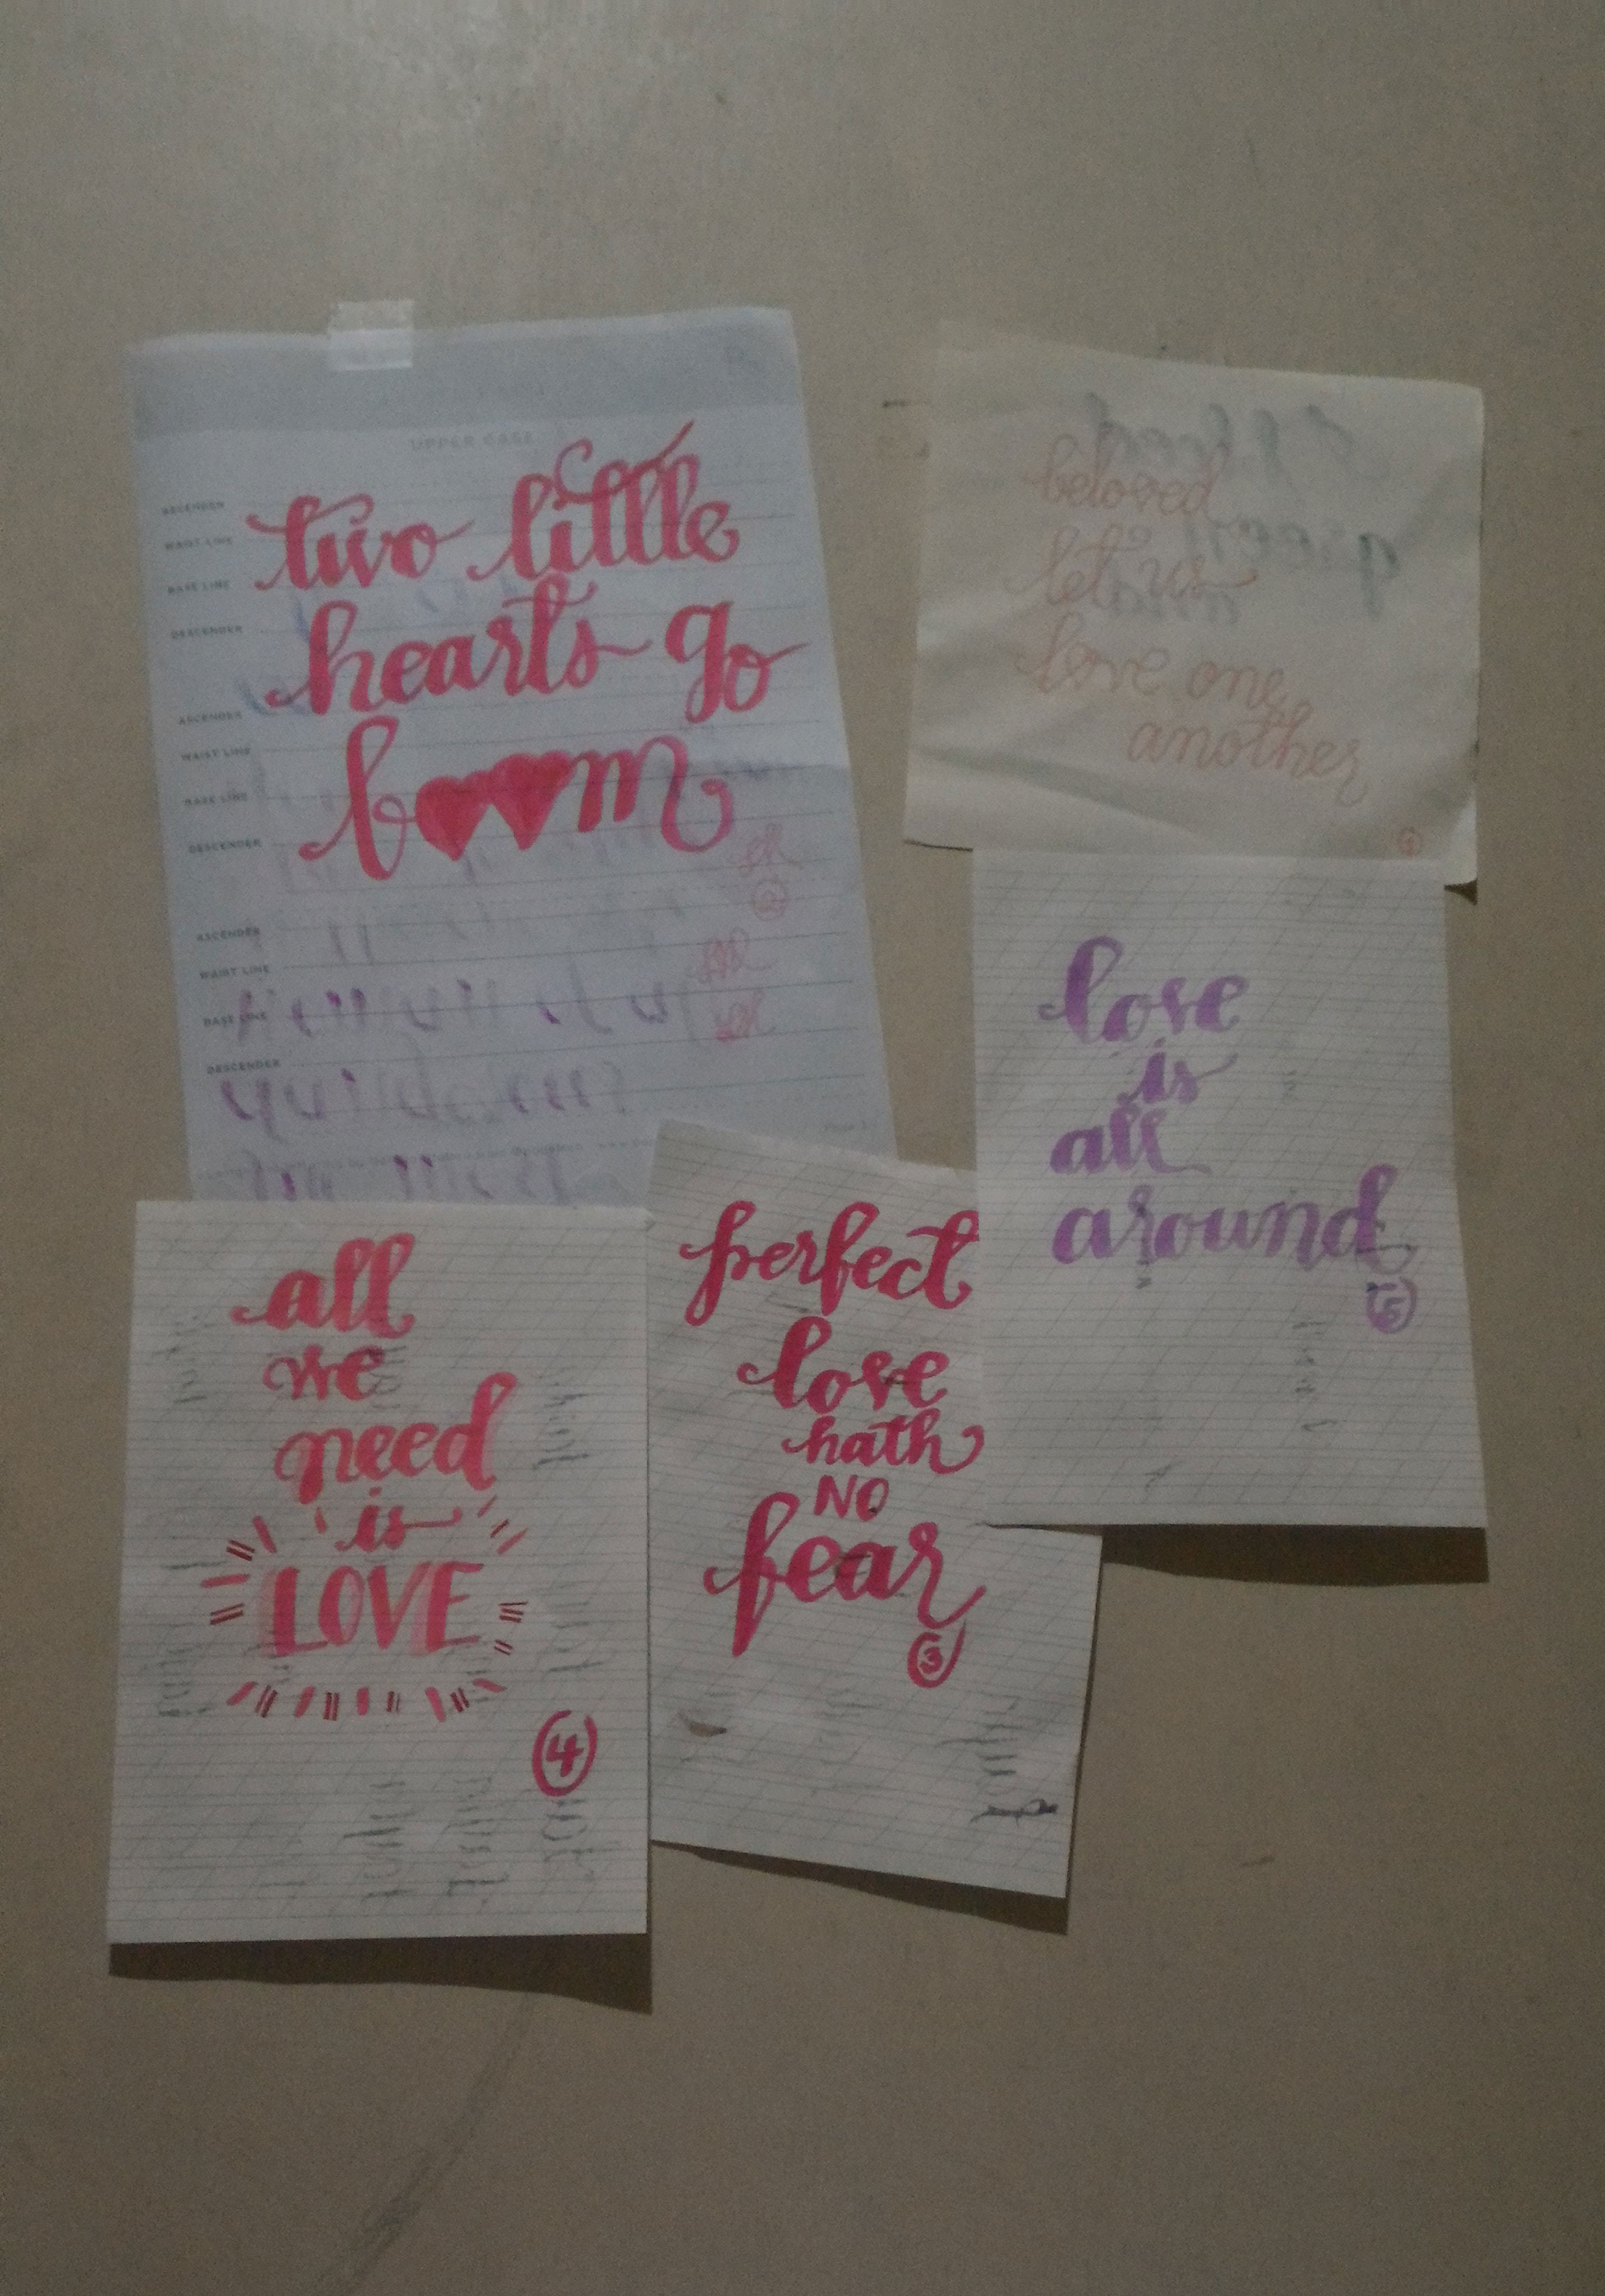 UPPER CASE
ASCENDER
WAIST LINE
BASE LINE
DESCENDER
ASCENDER
WAIST LINE
BASE LINE
DESCENDER
ASCENDER
WAIST LINE
BASE LINE
DESCENDER
two little
hearts go
boom
2
beloved
let us
love one
another
1
love
is
all
around
5
all
we
need
is
LOVE
4
perfect
love
hath
NO
fear
3